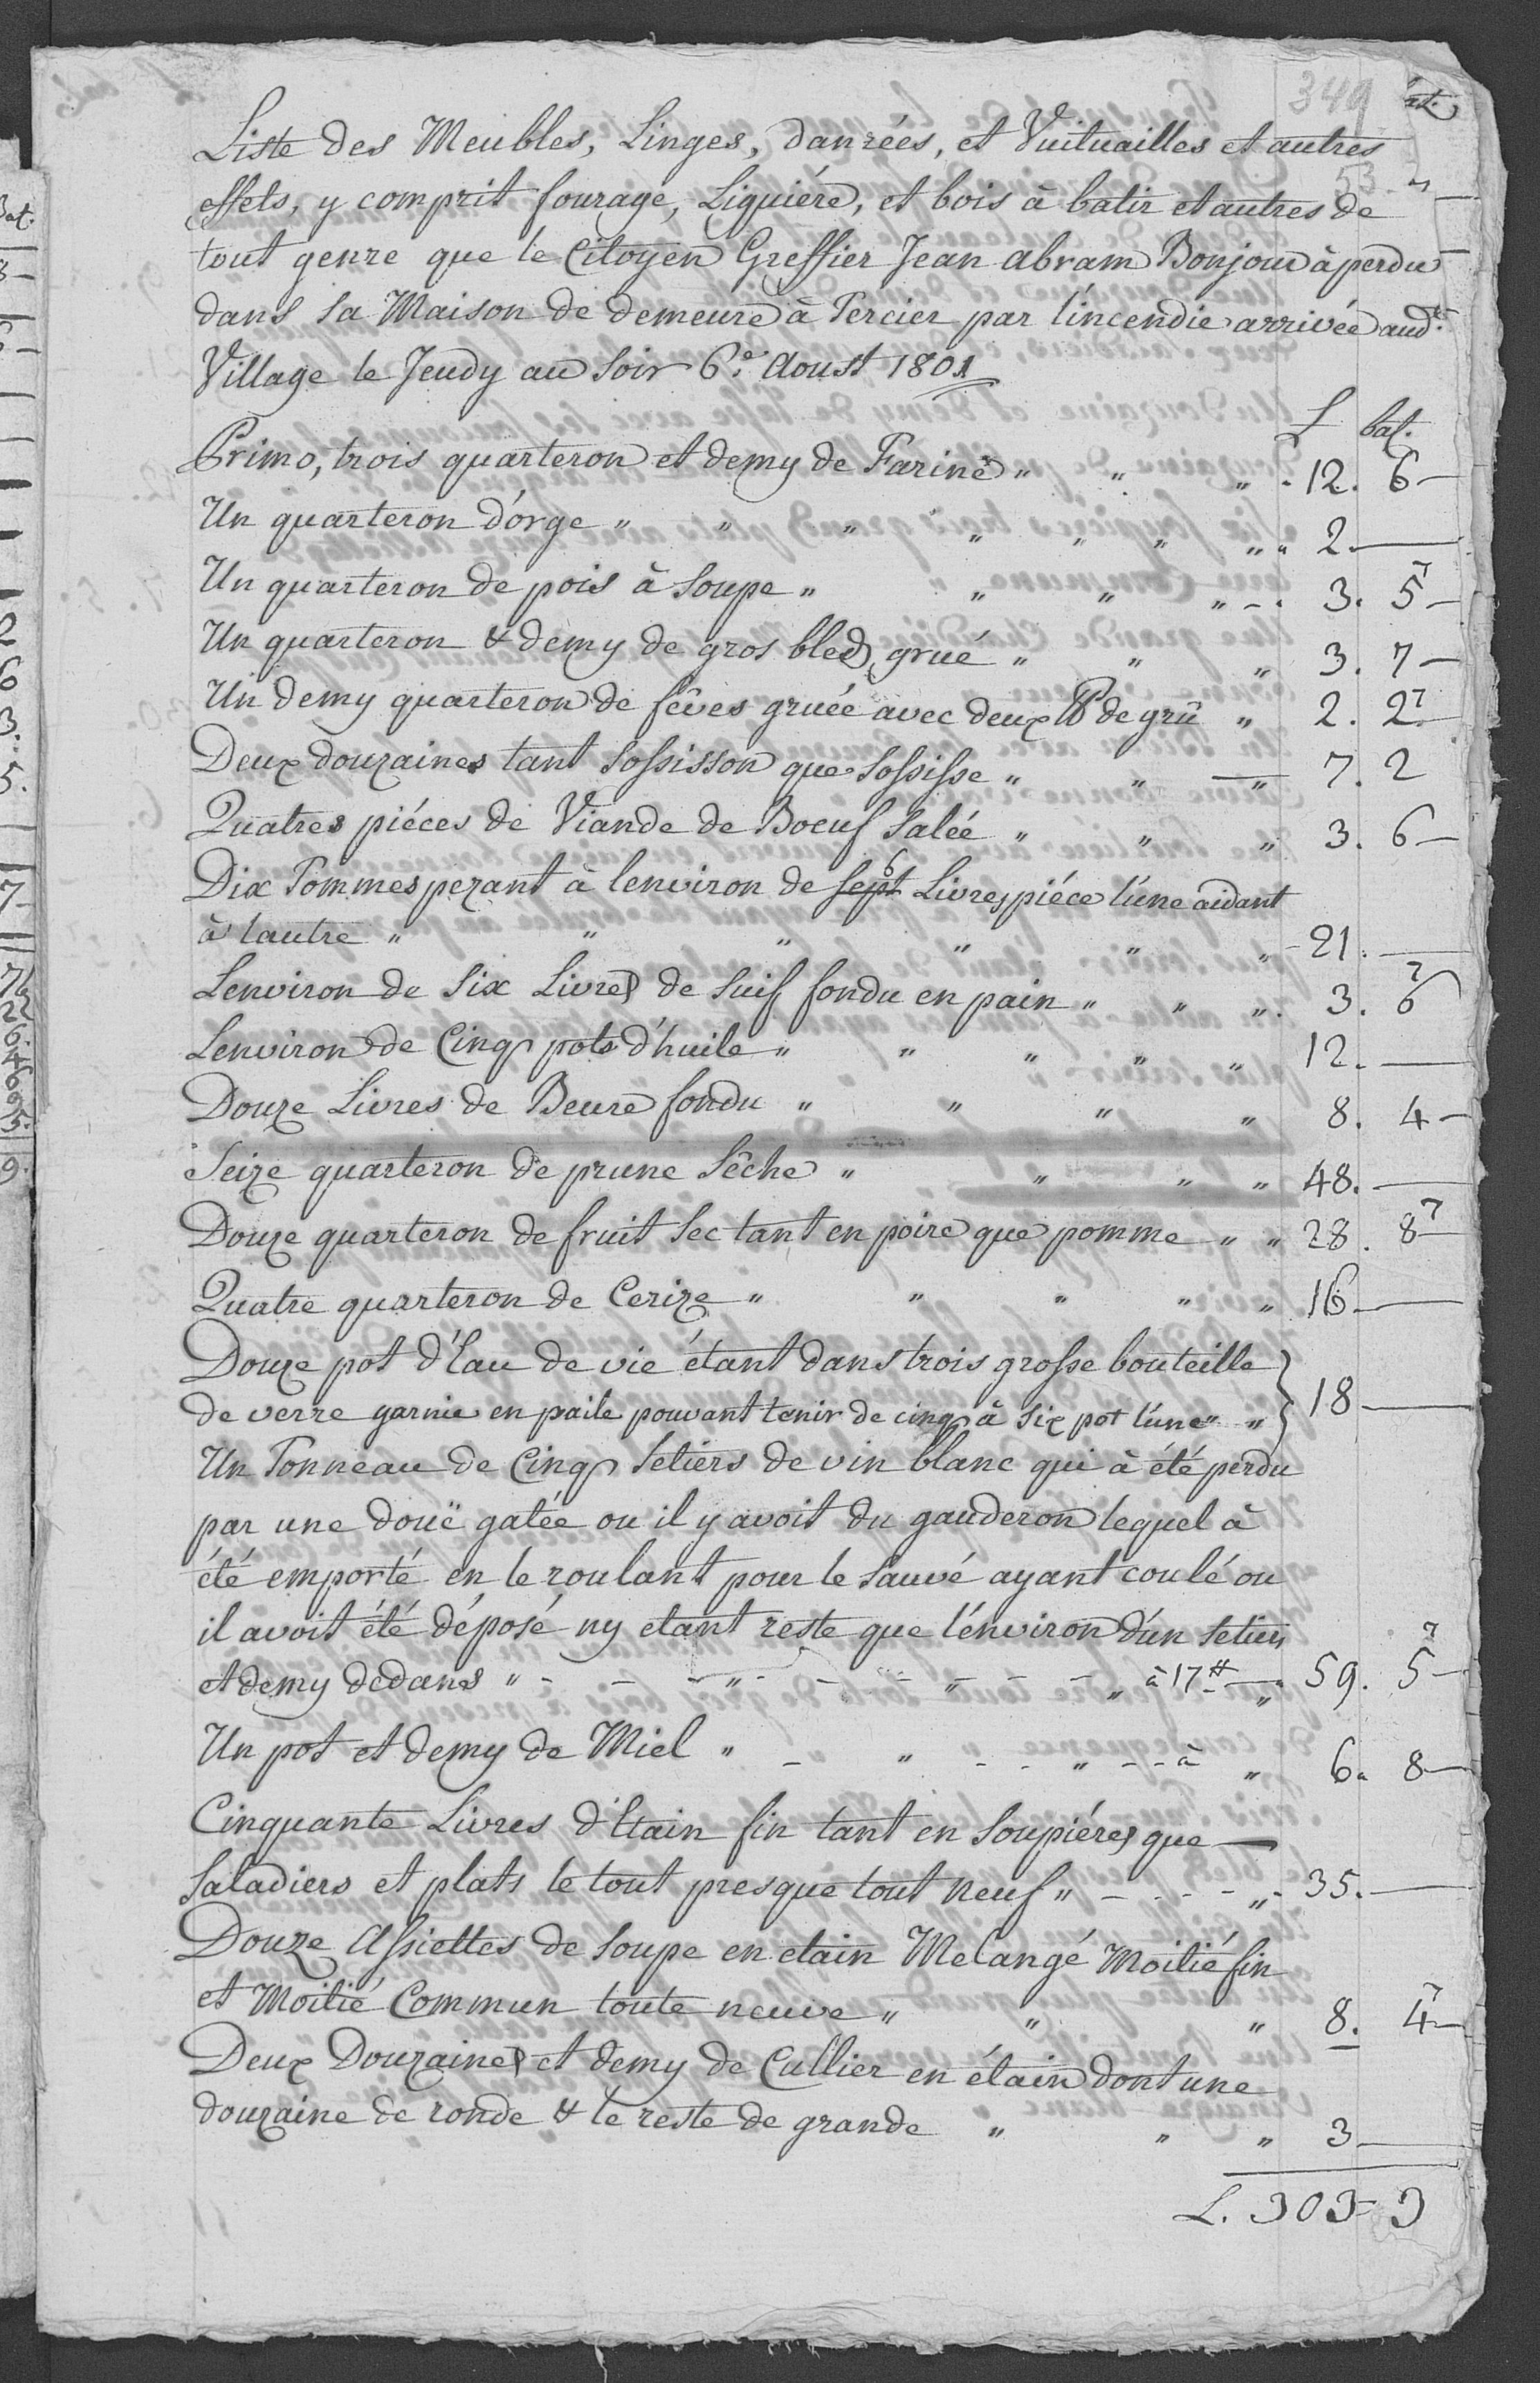 349
Liste des Meubles, Linges, danrées, et Vuituailles et autres
effets, y comprit fourage, Liquiére, et bois à batir et autres de
tout genre que le Citoyen Greffier Jean abram Bonjour à perdu
dans sa Maison de demeure à Percier par l'incendie arrivée aud.t
Village le Jeudy au soir 6.e Aoust 1801
L bat.
Primo, trois quarteron et demy de Farine " " " 12. 6 –
Un quarteron d'orge " " " " " " " 2. —
Un quarteron de pois à soupe " " " " 3. 5 –
Un quarteron & demy de gros bled grué " " " 3. 7 –
Un demy quarteron de fêves gruée avec deux ℔ de grû " 2. 2 –
Deux douzaines tant sossisson que sossisse " " " 7. 2
Quatres piéces de Viande de Boeuf salée " " " 3. 6 –
Dix Tommes pezant à lenviron de sept 6 Livres piéce l'une aidant
à lautre " " " " " " 21. —
Lenviron de six Livres de suif fondu en pain " " " 3. 6
Lenviron de Cinq pots d'huile " " " " " 12. —
Douze Livres de Beure fondu " " " " 8. 4 –
Seize quarteron de prune sêche " " " " 48. —
Douze quarteron de fruit sec tant en poire que pomme " " 28. 8 –
Quatre quarteron de Cerize " " " " " 16 —
Douze pot d'Eau de vie étant dans trois grosse bouteille
de verre garnie en paile pouvant tenir de cinq à six pot l'une " " } 18 —
Un Tonneau de Cinq setiers de vin blanc qui à été perdu
par une douë gatée ou il y avoit du gauderon lequel à
été emporté en le roulant pour le sauvé ayant coulé ou
il avoit été déposé ny etant reste que l'environ d'un setier
et demy dedans " – – – " – – – " – – – " à 17 ₶ – 59. 5 –
Un pot et demy de Miel " – " – – " – – à " 6. 8 –
Cinquante Livres d'Etain fin tant en soupiéres que —
saladiers et plats le tout presque tout neuf " – – – – " 35. —
Douze Assiettes de soupe en etain Melangé Moitié fin
et Moitié Commun toute neuve " " " 8. 4 –
Deux Douzaines et demy de Cullier en étain dont une
douzaine de ronde & le reste de grande " " " 3 —
L. 303 = 3